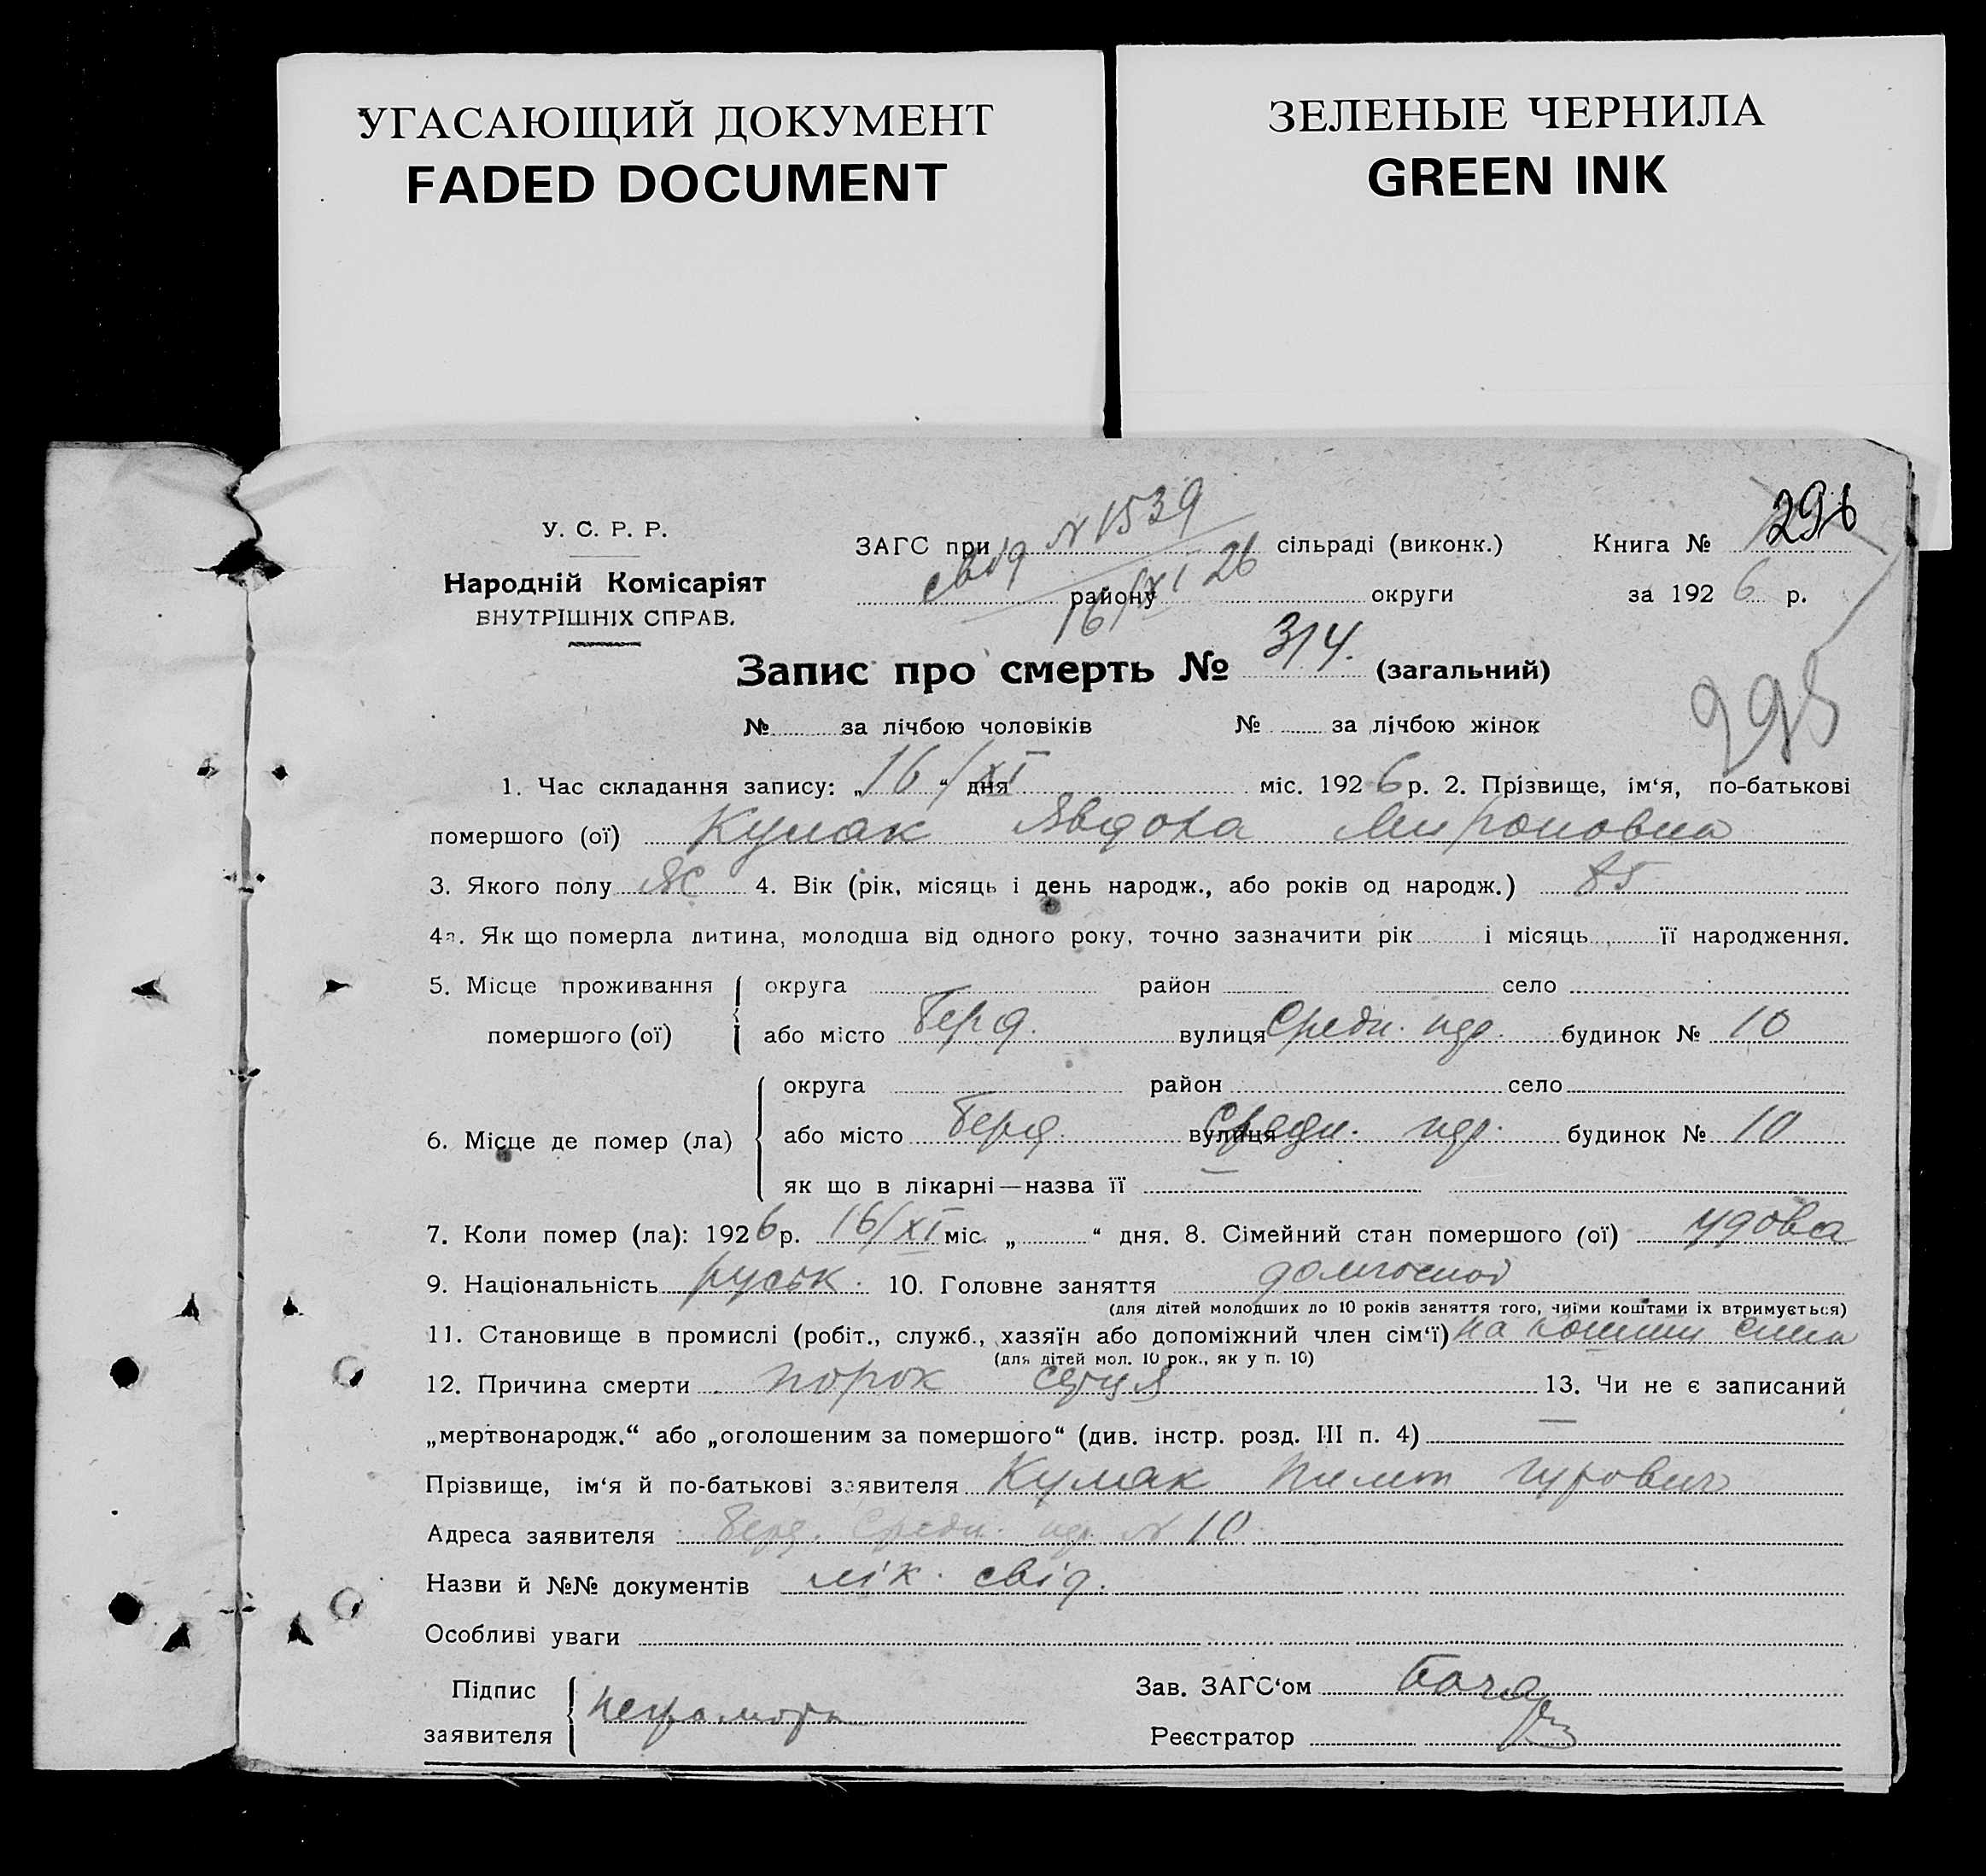 УГАСАЮЩИЙ ДОКУМЕНТ
FADED DOCUMENT
ЗЕЛЕНЫЕ ЧЕРНИЛА
GREEN INK
У. С. Р. Р.
Народній Комісаріят
ВНУТРІШНІХ СПРАВ.
ЗАГС при № 1539 сільраді (виконк.)
свід району 16/XI 26 округи
Книга № 296
за 1926 р.
Запис про смерть № 314. (загальний)
295
№ за лічбою чоловіків № за лічбою жінок
1. Час складання запису: „16“/XI дня міс. 1926 р. 2. Прізвище, ім‘я, по-батькові
помершого (ої) Кулак Явдоха Мироновна
3. Якого полу ж 4. Вік (рік, місяць і день народж., або років од народж.) 85
4а. Як що померла дитина, молодша від одного року, точно зазначити рік і місяць її народження.
5. Місце проживання округа район село
помершого (ої) або місто Берд. вулиця Средн. пдр. будинок № 10
округа район село
6. Місце де помер (ла) або місто Берд. вулиця Средн. пдр. будинок № 10
як що в лікарні—назва її —
7. Коли помер (ла): 1926 р. 16/XI міс. „ “ дня. 8. Сімейний стан помершого (ої) удова
9. Національність руськ. 10. Головне заняття домгоспод
(для дітей молодших до 10 років заняття того, чиїми коштами їх втримується)
11. Становище в промислі (робіт., служб., хазяїн або допоміжний член сім‘ї) на кошти сина
(для дітей мол. 10 рок., як у п. 10)
12. Причина смерти порок серця 13. Чи не є записаний
„мертвонародж.“ або „оголошеним за помершого“ (див. інстр. розд. III п. 4) —
Прізвище, ім‘я й по-батькові заявителя Кулак Пилип Гурович
Адреса заявителя Берд. Средн. пдр. № 10
Назви й №№ документів лік. свід.
Особливі уваги
Підпис заявителя неграмотн
Зав. ЗАГС‘ом
Реєстратор